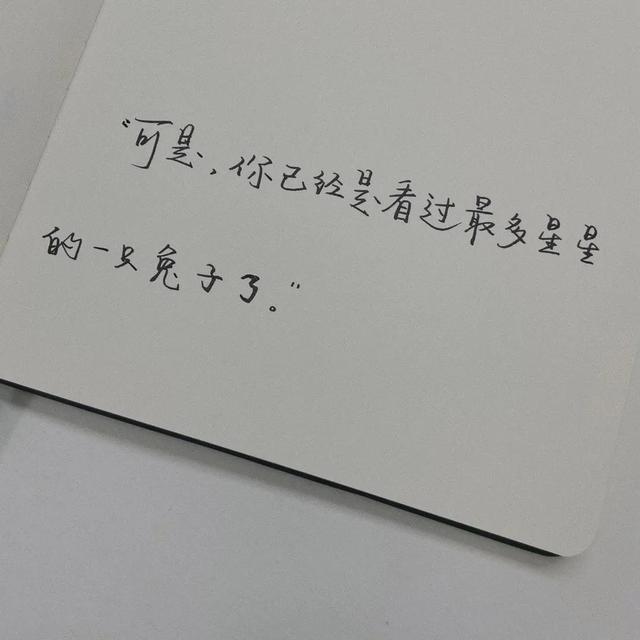 “可是，你已经是看过最多星星
的一只兔子了。”